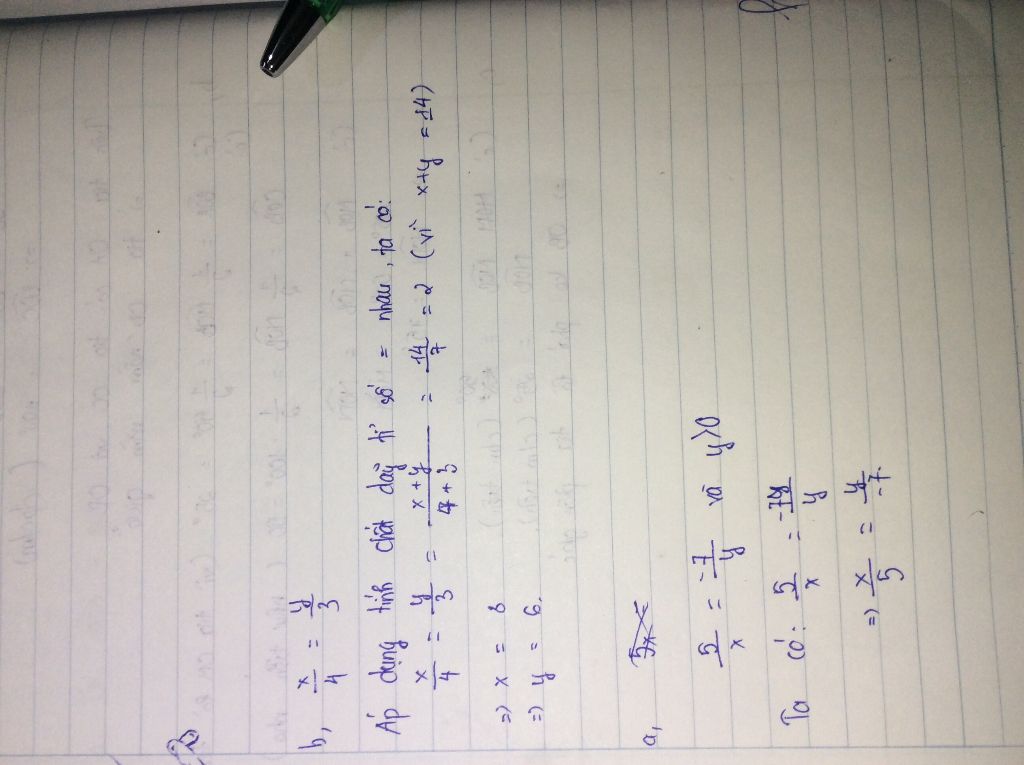 b, x/4 = y/3
Áp dụng tính chất dãy tỉ số = nhau, ta có:
x/4 = y/3 = x+y/4+3 = 14/7 = 2 (vì x+y = 14)
=> x = 8
=> y = 6.
a,
5/x = -7/y và y>0
Ta có: 5/x = -7/y
=> x/5 = y/-7.